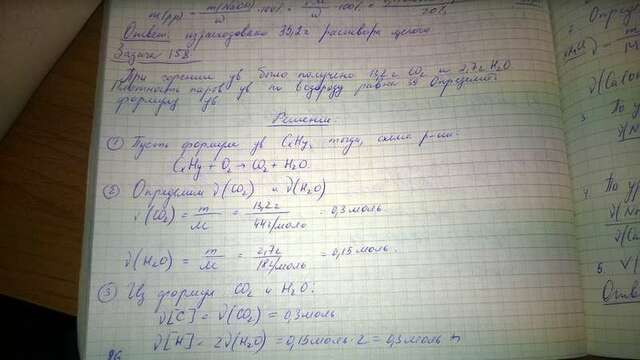 m(р-ра) = m(NaOH) / ω · 100% =
Ответ: израсходовано 35,2 г раствора
Задача 158
При горении ув было получено 13,2 г CO₂ и 2,7 г H₂O
Плотность паров ув по водороду равна 39 Определите
формулу ув
Решение
① Пусть формула ув CxHy, тогда, схема р-ии:
CxHy + O₂ → CO₂ + H₂O
② Определим ν(CO₂) и ν(H₂O)
ν(CO₂) = m / M = 13,2 г / 44 г/моль = 0,3 моль
ν(H₂O) = m / M = 2,7 г / 18 г/моль = 0,15 моль.
③ Из формул CO₂ и H₂O:
ν[C] = ν(CO₂) = 0,3 моль
ν[H] = 2ν(H₂O) = 0,15 моль · 2 = 0,3 моль
96
3. По у
4. По ур
5. V
Ответ